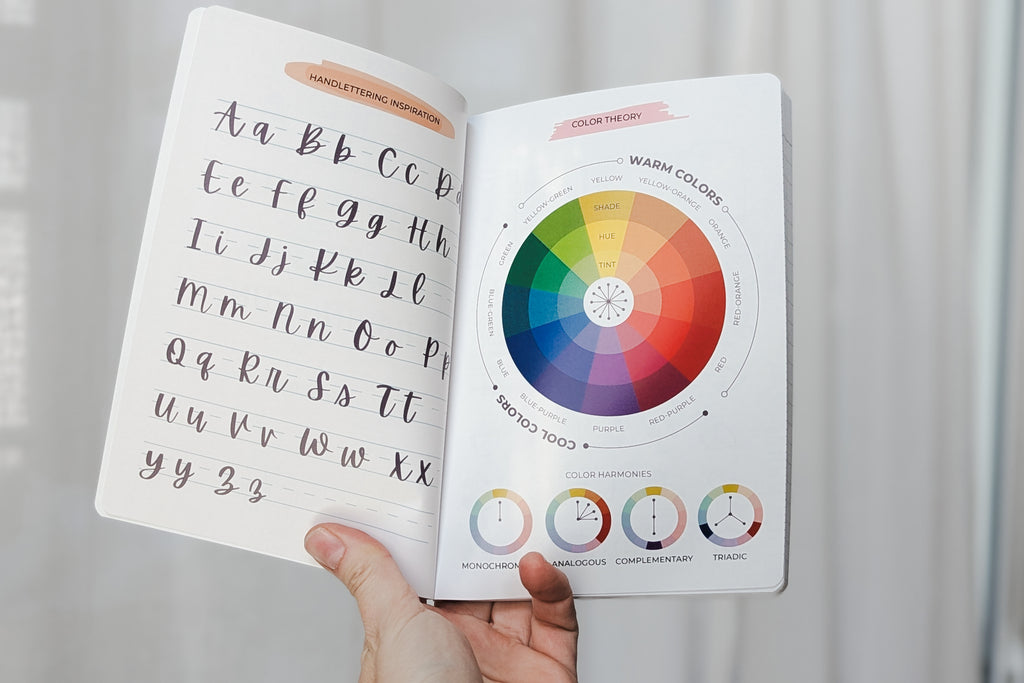 HANDLETTERING INSPIRATION
Aa Bb Cc D
Ee Ff Gg Hh
Ii Jj Kk Ll
Mm Nn Oo Pp
Qq Rr Ss Tt
Uu Vv Ww Xx
Yy Zz
COLOR THEORY
WARM COLORS
YELLOW
YELLOW-ORANGE
ORANGE
RED-ORANGE
RED
RED-PURPLE
PURPLE
BLUE-PURPLE
BLUE
BLUE-GREEN
GREEN
YELLOW-GREEN
SHADE
HUE
TINT
COOL COLORS
COLOR HARMONIES
ANALOGOUS
COMPLEMENTARY
TRIADIC